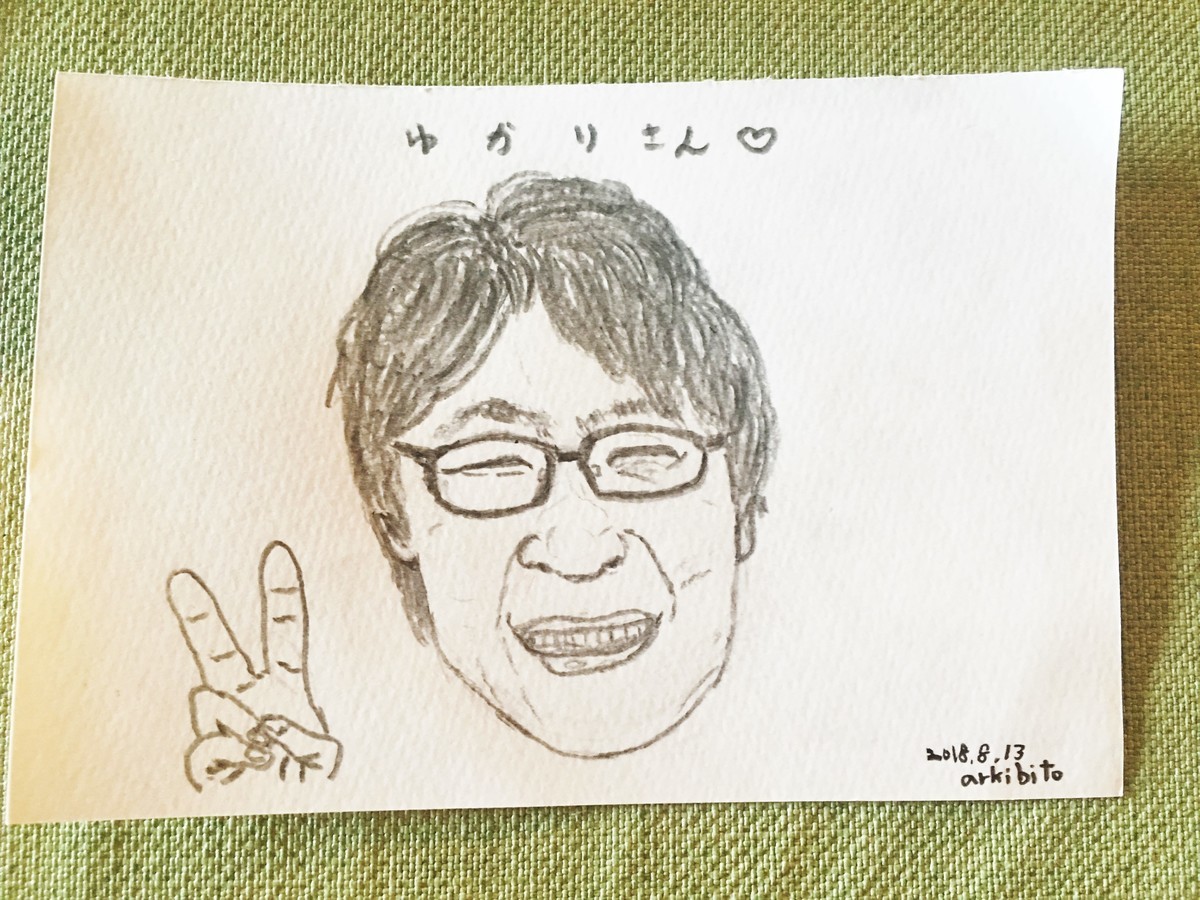 ゆかりさん♡
2018.8.13
arkibito